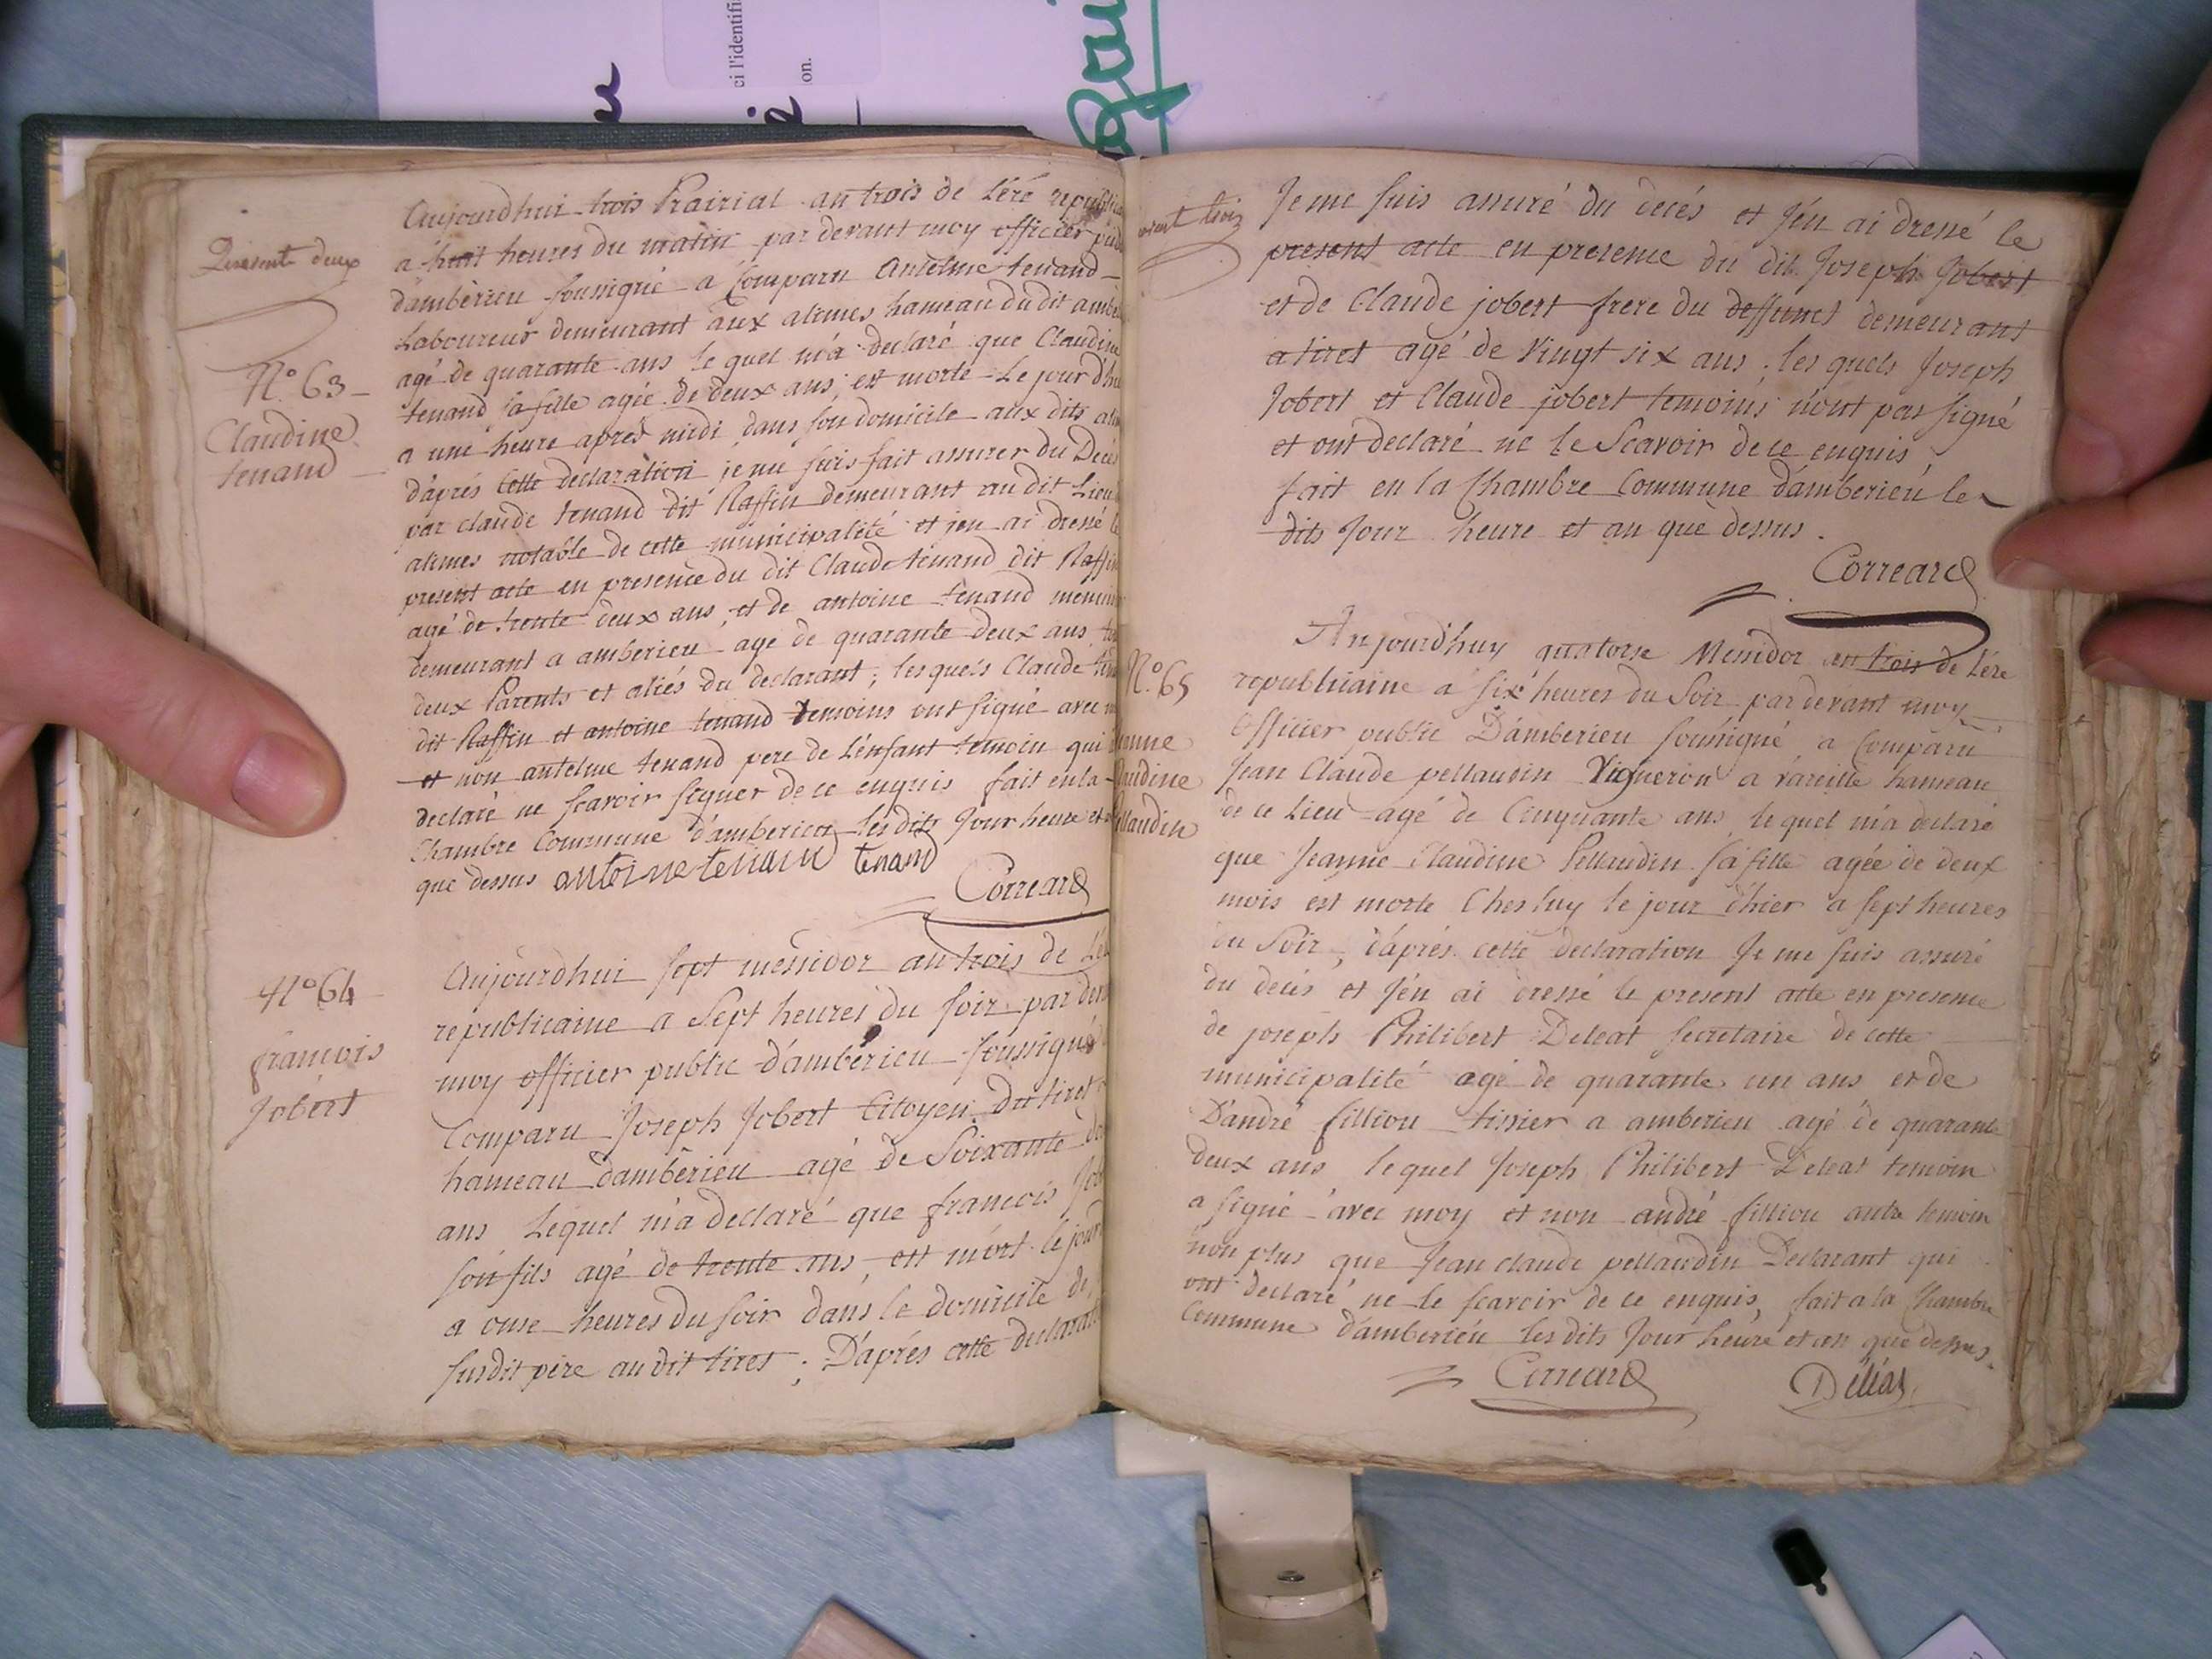 ci l'identifi
on.
deux
N.° 63
Claudine
tenand
Aujourdhui trois Prairial an trois de L'éré
a huit heures du matin par devant moy officier
d'ambèrieu soussigné a Comparu Antelme tenand
Laboureur demeurant aux alimes hameau du dit
agé de quarante ans le quel m'a declaré que Claudine
tenand sa fille agée de deux ans, est morte Le jour
a une heure aprés midi dans son domicile aux dits
d'aprés Cette declaration je me suis fait assurer du Decés
par claude tenand dit Raffin demeurant au dit Lieu
alimes notable de cette municipalité et jen ai dressé le
present acte en presence du dit Claude tenand dit Raffin
agé de trente deux ans, et de antoine tenand
demeurant a amberieu age de quarante deux ans
deux Parents et aliés du declarant; lesquels Claude
dit Raffin et antoine tenand temoins ont signé avec
et non antelme tenand pere de L'enfant temoin qui
declaré ne scavoir signer de ce enquis fait en la
Chambre Commune d'amberieu les dits Jour heure et
que dessus antoine tenand tenand
Correard
N° 64
francois
Jobert
Aujourdhui sept messidor an trois de
republicaine a Sept heures du soir par
moy officier public d'amberieu soussigné
Comparu Joseph Jobert Citoyen du tiret
hameau d'ambérieu agé de Soixante
ans Lequel m'a declaré que francois
son fils agé de trente ans, est mort le jour
a onse heures du soir dans le domicile de
susdit pére au dit tiret; D'aprés cette
Je me suis assuré du decés et j'én ai dressé le
present acte en presence du dit Joseph Jobert
et de Claude jobert frere du deffunct demeurant
a tiret agé de Vingt six ans. les quels Joseph
Jobert et Claude jobert temoins n'ont pas signé
et ont declaré ne le Scavoir de ce enquis,
fait en la Chambre Commune d'amberieu le
dits Jour heure et an que dessus.
Correard
N.° 65
Claudine
Pellaudin
Anjourd'huy quatorse Messidor an trois de L'ére
republicaine a six heures du Soir par devant moy
Officier public D'amberieu soussigné a Comparu
Jean Claude pellaudin Vigneron a vareille hameau
de ce Lieu agé de Cinquante ans, le quel m'a declaré
que Jeanne Claudine Pellaudin sa fille agée de deux
mois est morte Ches luy le jour d'hier a sept heures
du Soir, d'aprés cette declaration Je me suis assuré
du decés et j'én ai dressé le present acte en presence
de joseph Philibert Deleat secretaire de cette
municipalité agé de quarante un ans et de
D'andré fillion tissier a amberieu agé de quarante
deux ans lequel Joseph Philibert Deleat temoin
a signé avec moy et non andré fillion temoin
non plus que Jean claude pellaudin Declarant qui
ont declaré ne le scavoir de ce enquis, fait a la Chambre
Commune d'amberieu les dits Jour heure et an que dessus.
Correard
Déléat